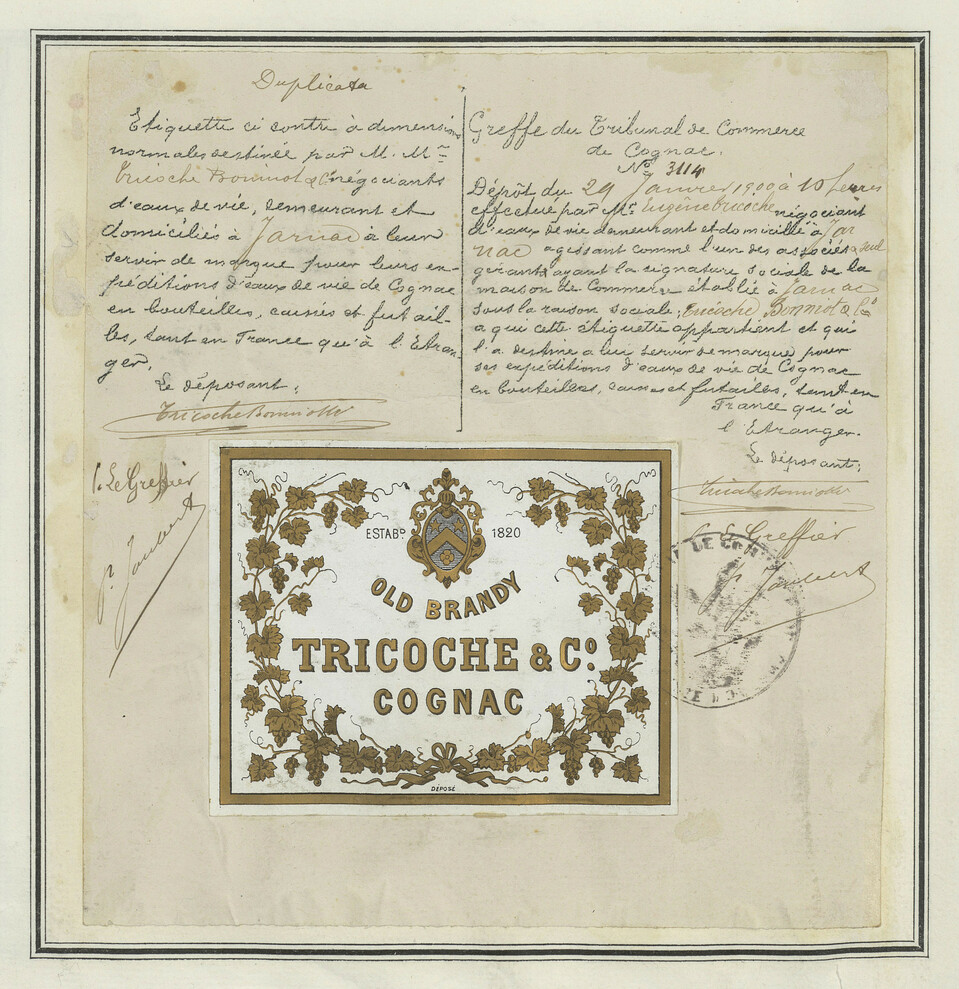 Duplicata
Etiquette ci contre à dimensions
normales destinée par M. Mrs
Tricoche Bonniot & Cie négociants
d'eaux de vie, demeurant et
domiciliés à Jarnac à leur
servir de marque pour leurs ex-
péditions d'eaux de vie de Cognac
en bouteilles, caisses et futail-
les, tant en France qu'à l'Etran-
ger.
Le déposant:
Tricoche Bonniot & Cie
p. Le Greffier
p. Joubert
Greffe du Tribunal de Commerce
de Cognac.
No 3114
Dépôt du 29 Janvier 1900 à 10 heures
effectué par Mr. Eugène Tricoche négociant
d'eaux de vie demeurant et domicilié à Jar
nac agissant comme l'un des associés & seul
gérant ayant la signature sociale de la
maison de Commerce établie à Jarnac
sous la raison sociale: Tricoche Bonniot & Co
a qui cette étiquette appartient et qui
l'a destine a lui servir de marque pour
ses expéditions d'eaux de vie de Cognac
en bouteilles, caisses et futailles, tant en
France qu'à
l'Etranger.
Le déposant:
Tricoche Bonniot & Cie
p. Le Greffier
p. Joubert
ESTABD 1820
OLD BRANDY
TRICOCHE & Co.
COGNAC
DÉPOSÉ